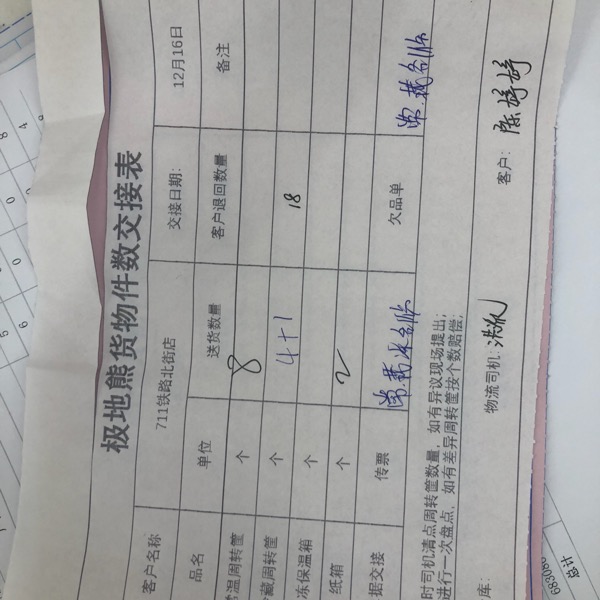 极地熊货物件数交接表
客户名称 711铁路北街店 交接日期: 12月16日
品名 单位 送货数量 客户退回数量 备注
常温周转筐 个 8
藏周转筐 个 4+1 18
冻保温箱 个
纸箱 个 2
据交接 传票 欠品单
时司机清点周转筐数量，如有异议现场提出；
进行一次盘点，如有差异周转筐按个数赔偿；
库: 物流司机: 客户: 陈婷婷
683086
总计